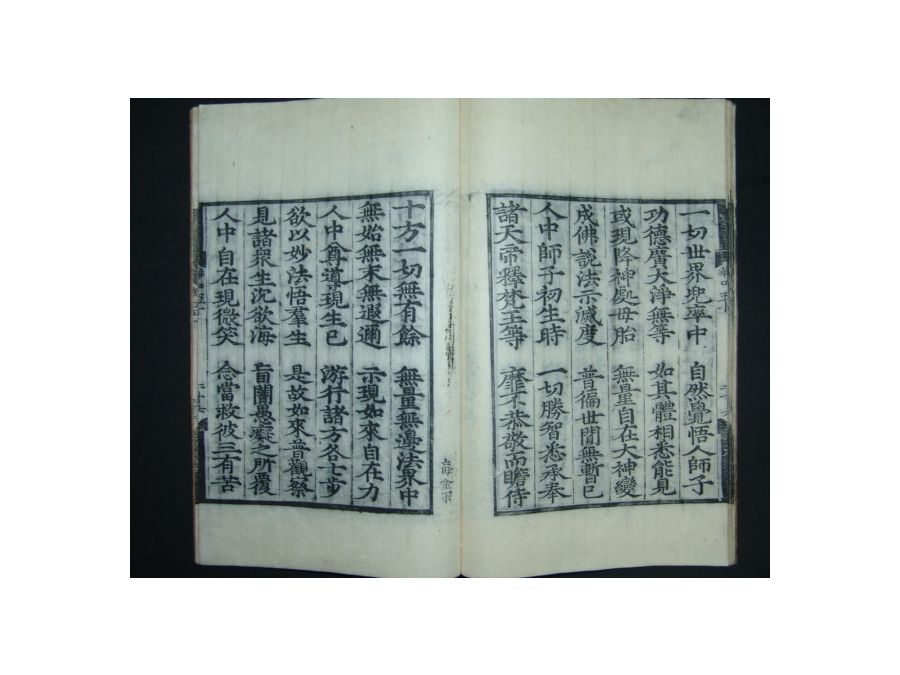 一切世界兜率中　自然覺悟人師子
功德廣大淨無等　如其體相悉能見
或現降神處母胎　無量自在大神變
成佛說法示滅度　普徧世間無暫已
人中師子初生時　一切勝智悉承奉
諸天帝釋梵王等　靡不恭敬而瞻侍
十方一切無有餘　無量無邊法界中
無始無末無遐邇　示現如來自在力
人中尊導現生已　游行諸方各七步
欲以妙法悟羣生　是故如來普觀察
見諸衆生沈欲海　盲闇愚癡之所覆
人中自在現微笑　念當救彼三有苦